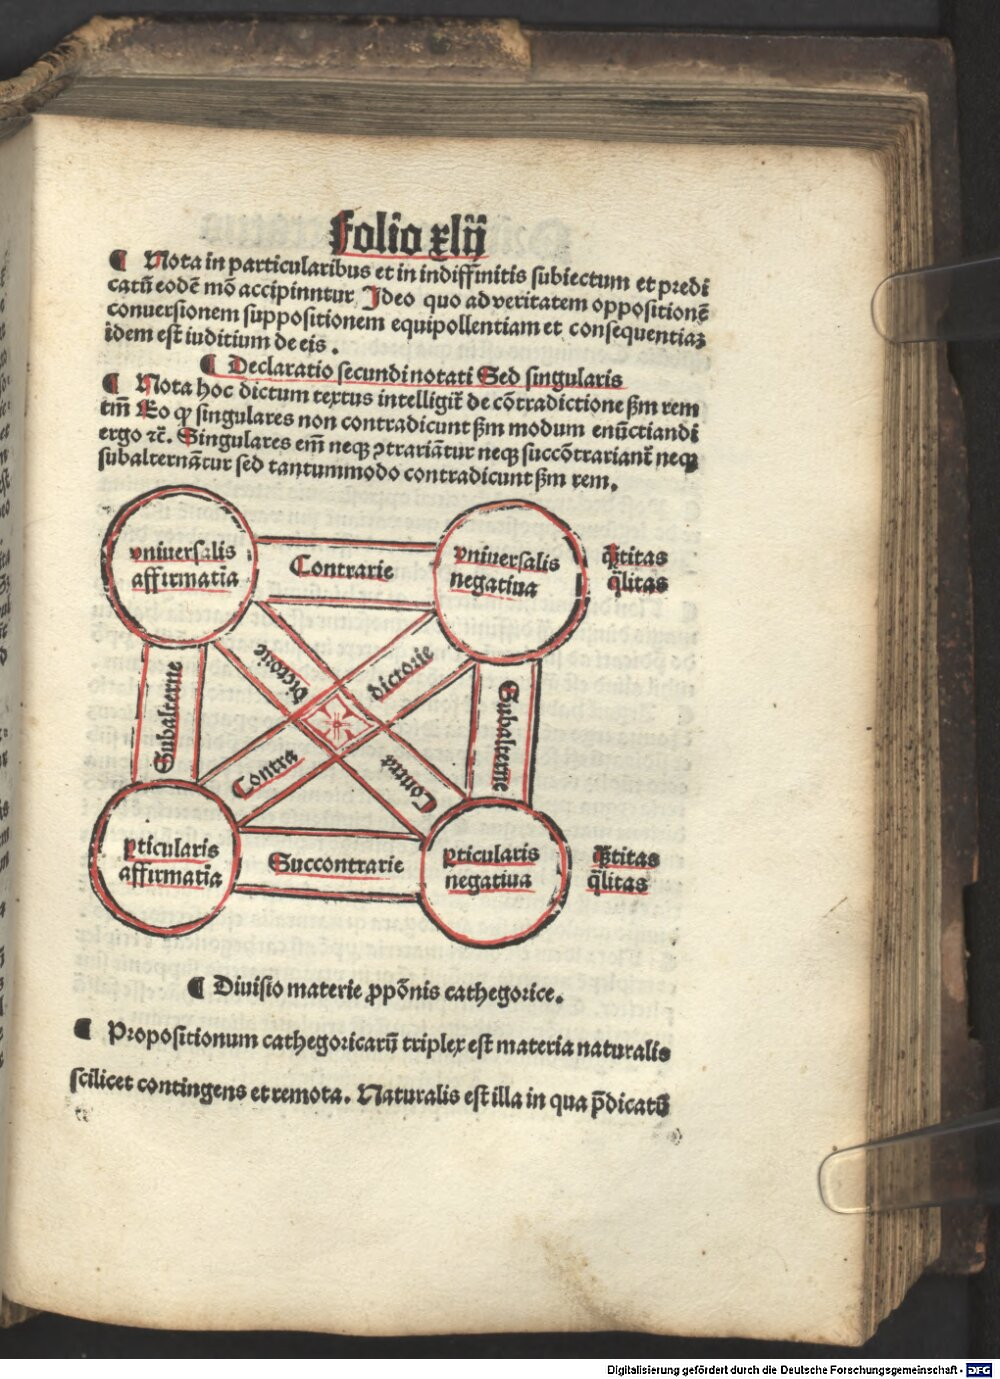 folio xlij
¶ Nota in particularibus et in indiffinitis subiectum et predi
catū eodē mō accipinntur Ideo quo ad veritatem oppositionē
conuersionem suppositionem equipollentiam et consequentiaꝫ
idem est iuditium de eis.
¶ Declaratio secundi notati Sed singularis
¶ Nota hoc dictum textus intelligit̄ de cōtradictione ẜm rem
tm̄ Eo ꝙ singulares non contradicunt ẜm modum enūctiandi
ergo ⁊c̄. Singulares em̄ neqꝫ ꝯtrariātur neqꝫ succōtrariant̄ neqꝫ
subalternātur sed tantummodo contradicunt ẜm rem.
vniuersalis
affirmatīa
Contrarie
vniuersalis
negatiua
qͣ̄titas
q̄litas
dictorie
dictorie
Subalterne
Subalterne
Contra
Contra
ꝑticularis
affirmatīa
Succontrarie
ꝑticularis
negatiua
qͣ̄titas
q̄litas
¶ Diuisio materie ꝓpōnis cathegorice.
¶ Propositionum cathegoricarū triplex est materia naturalis
scilicet contingens et remota. Naturalis est illa in qua p̄dicatū
Digitalisierung gefördert durch die Deutsche Forschungsgemeinschaft - DFG